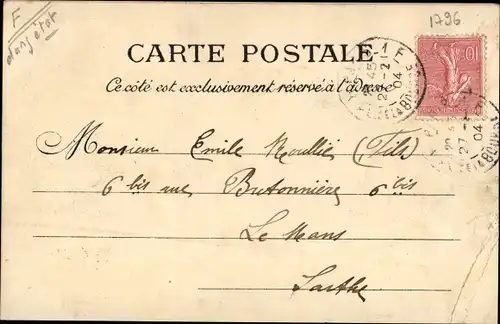 1796
F
CARTE POSTALE
Ce côté est exclusivement réservé à l'adresse
Monsieur Emile Roullier (Fils)
6 bis rue Butonnière 6 bis
Le Mans
Sarthe
10
04
27
04